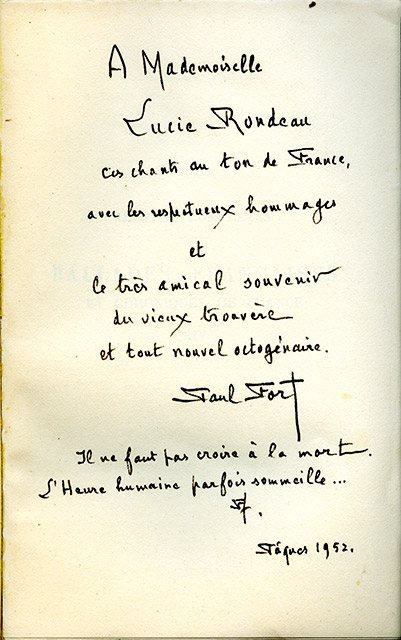 A Mademoiselle
Lucie Rondeau
ces chants au ton de France,
avec les respectueux hommages
et
le très amical souvenir
du vieux trouvère
et tout nouvel octogénaire.
Paul Fort
Il ne faut pas croire à la mort.
L'Heure humaine parfois sommeille...
PF.
Pâques 1952.